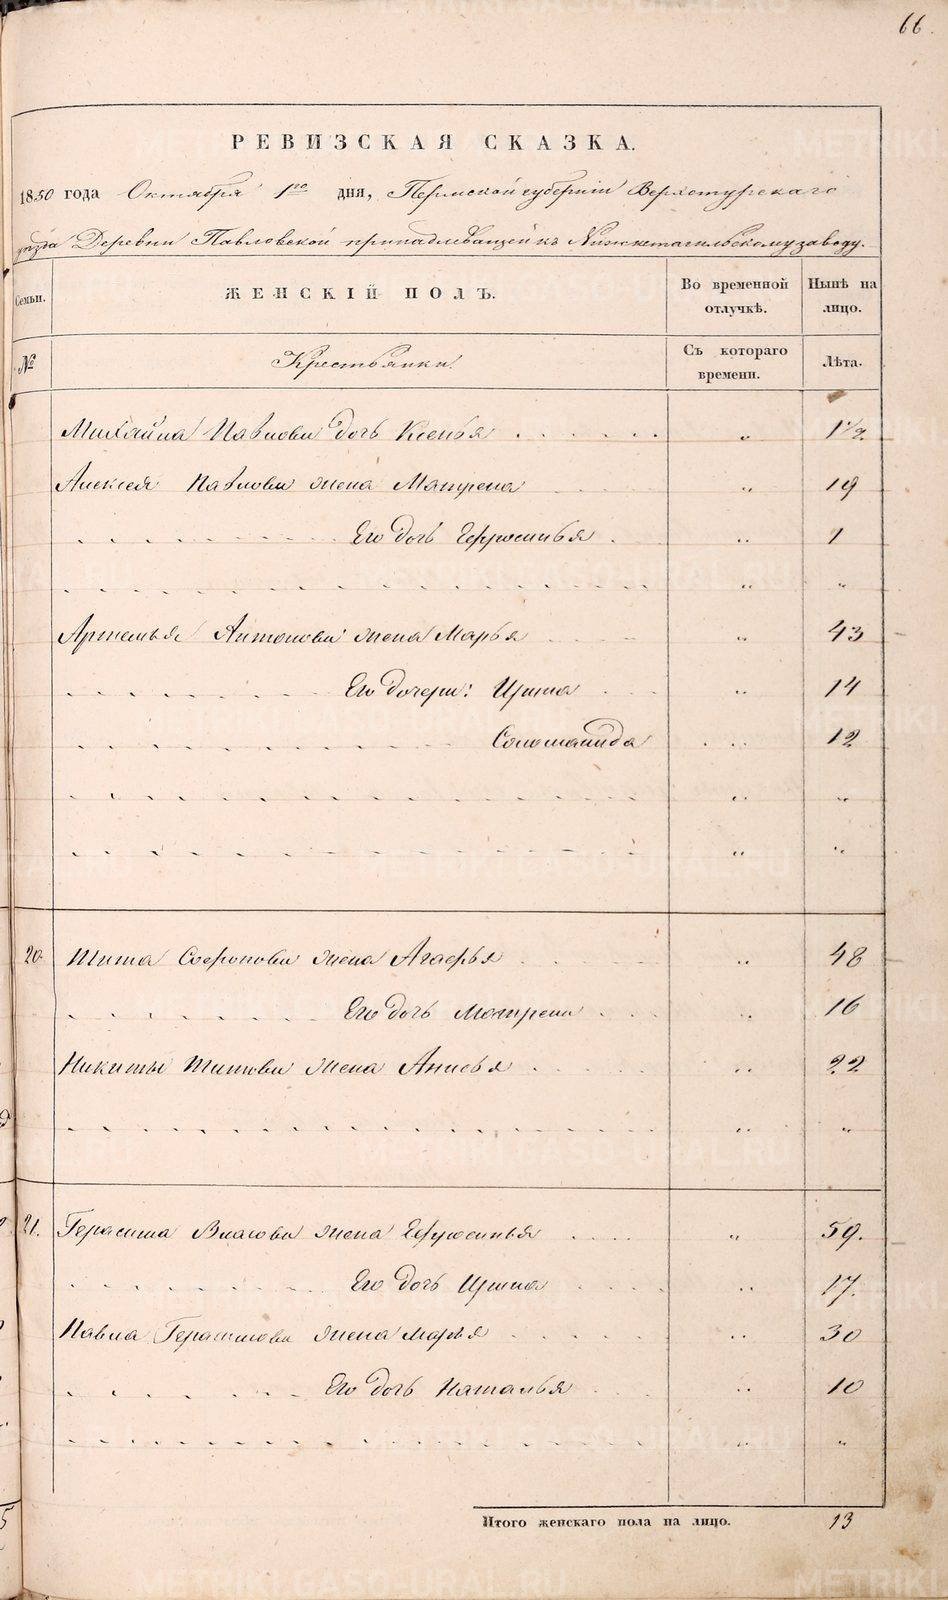 66.
РЕВИЗСКАЯ СКАЗКА.
1850 года Октября 1го дня, Пермской губерніи Верхотурскаго
уѣзда Деревни Павловской принадлежащей къ Нижнетагильскому заводу.
Семьи. ЖЕНСКІЙ ПОЛЪ. Во временной отлучкѣ. Нынѣ на лицо.
№ Крестьянки. Съ котораго времени. Лѣта.
Михайла Павлова дочь Ксенья 1 1/2
Алексея Павлова жена Матрена 19
Его дочь Ефросинья 1
Артемья Антонова жена Марья 43
Его дочери: Ирина 14
Соломанида 12
20. Тита Софронова жена Агафья 48
Его дочь Матрена 16
Никиты Титова жена Анисья 22
21. Герасима Власова жена Ефросинья 59.
Его дочь Ирина 17.
Павла Герасимова жена Марья 30
Его дочь Наталья 10
Итого женскаго пола на лицо. 13
METRIKI.GASO-URAL.RU